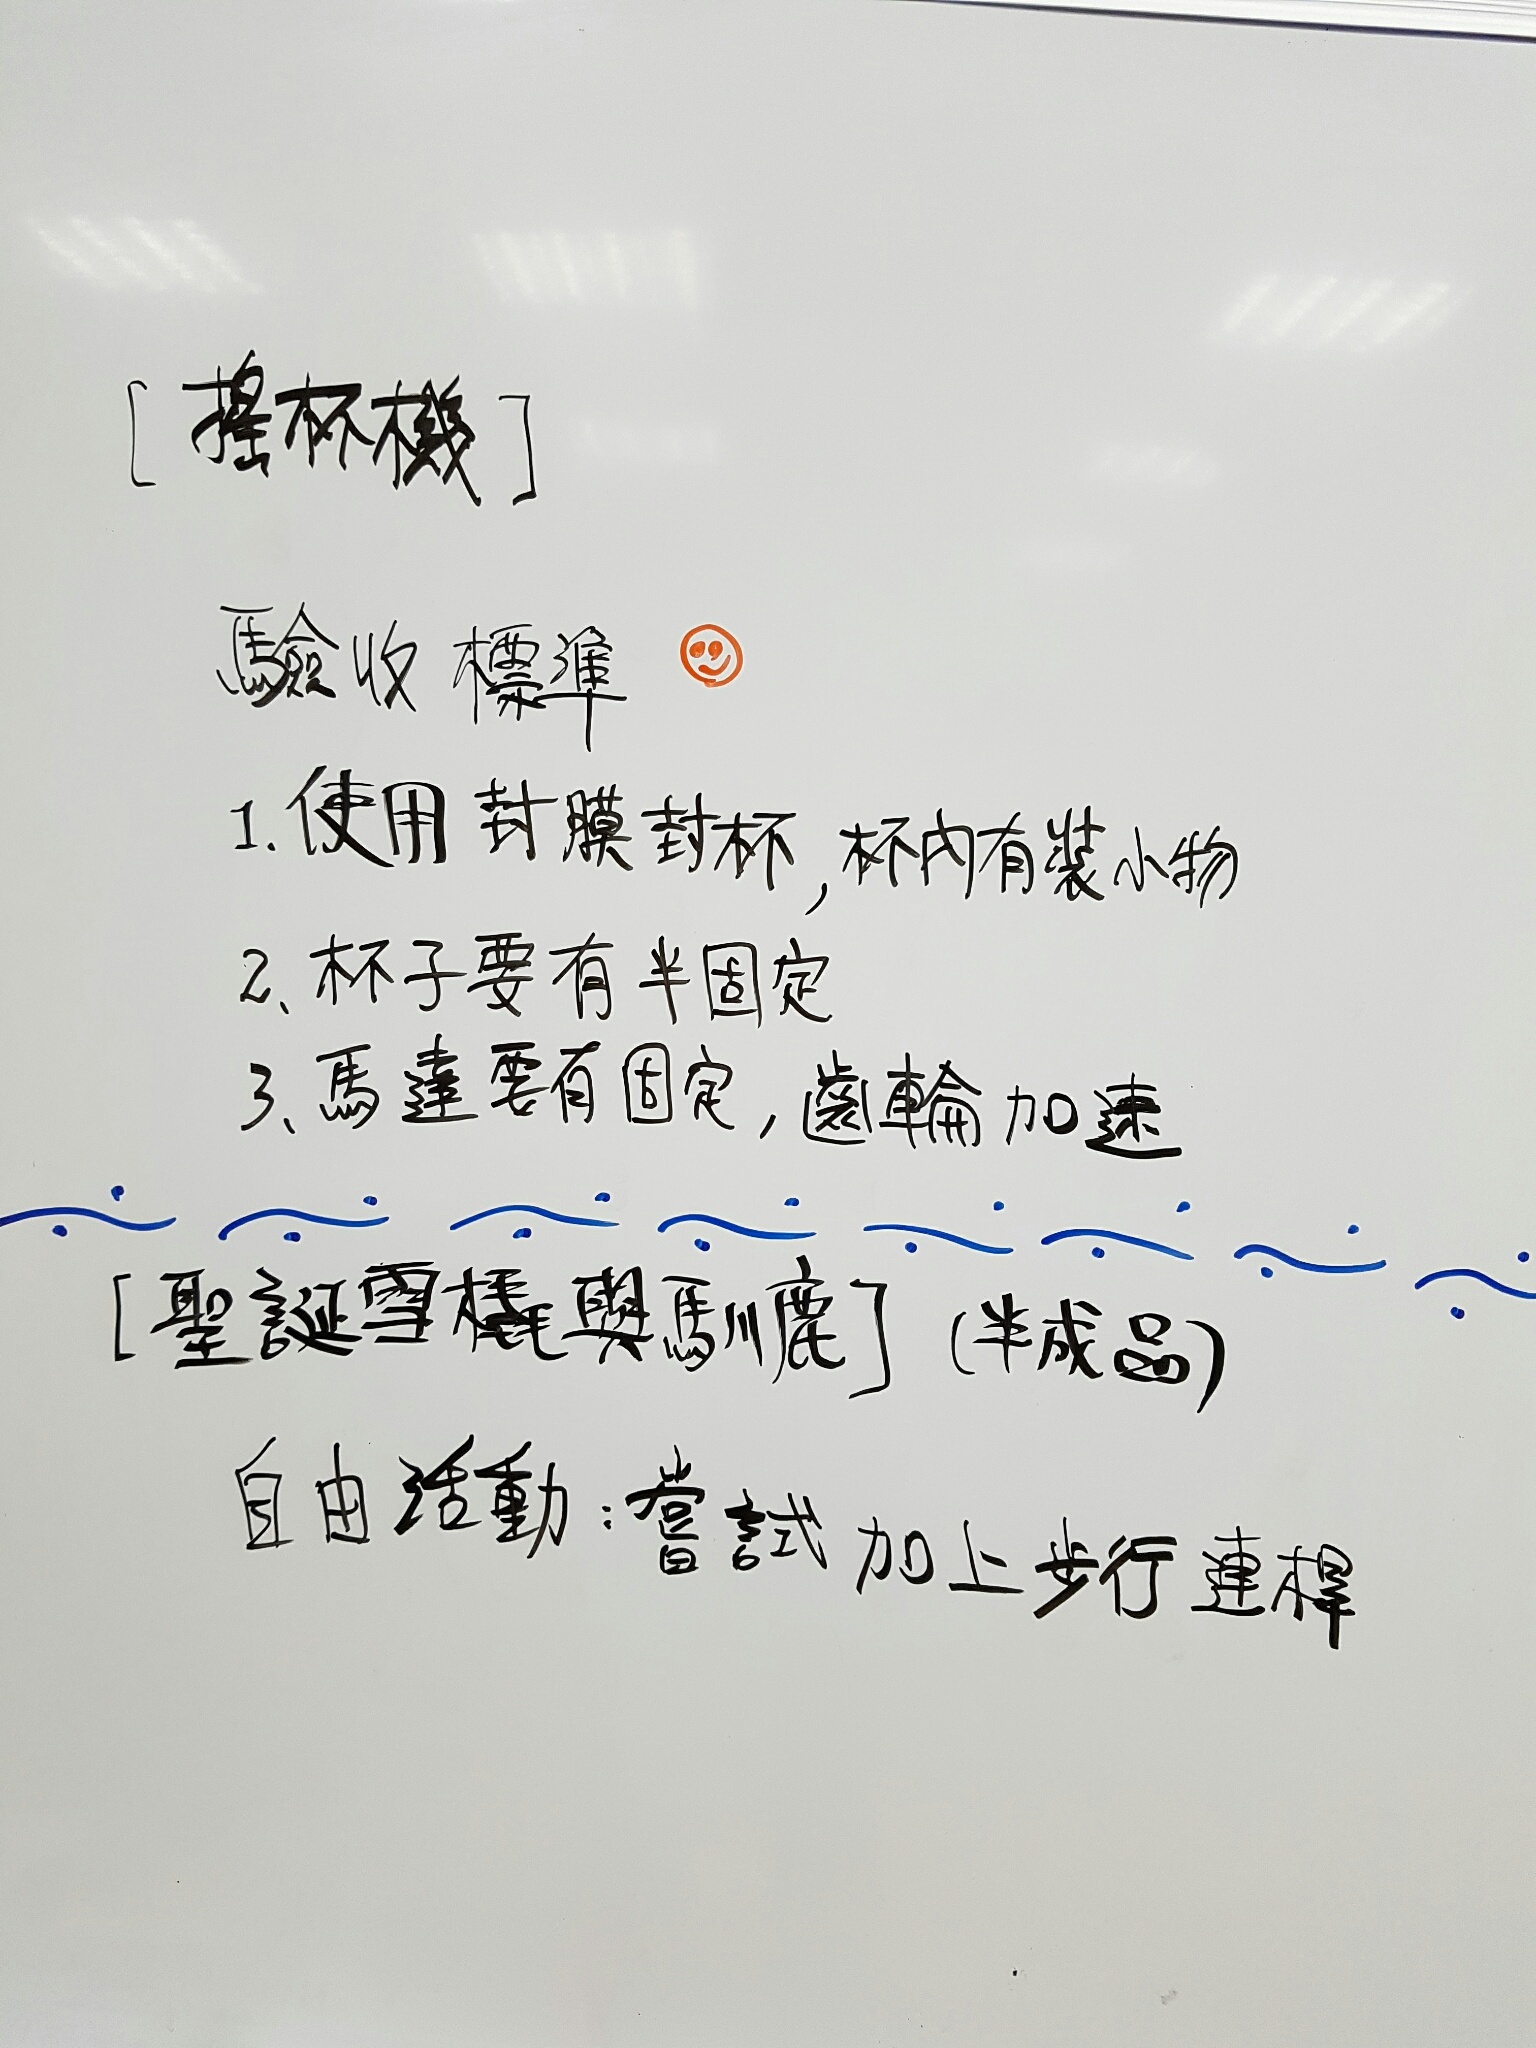 [搖杯機]
驗收標準
1.使用封膜封杯,杯內有裝小物
2、杯子要有半固定
3、馬達要有固定,齒輪加速
[聖誕雪橇與馴鹿](半成品)
自由活動:嘗試加上步行連桿